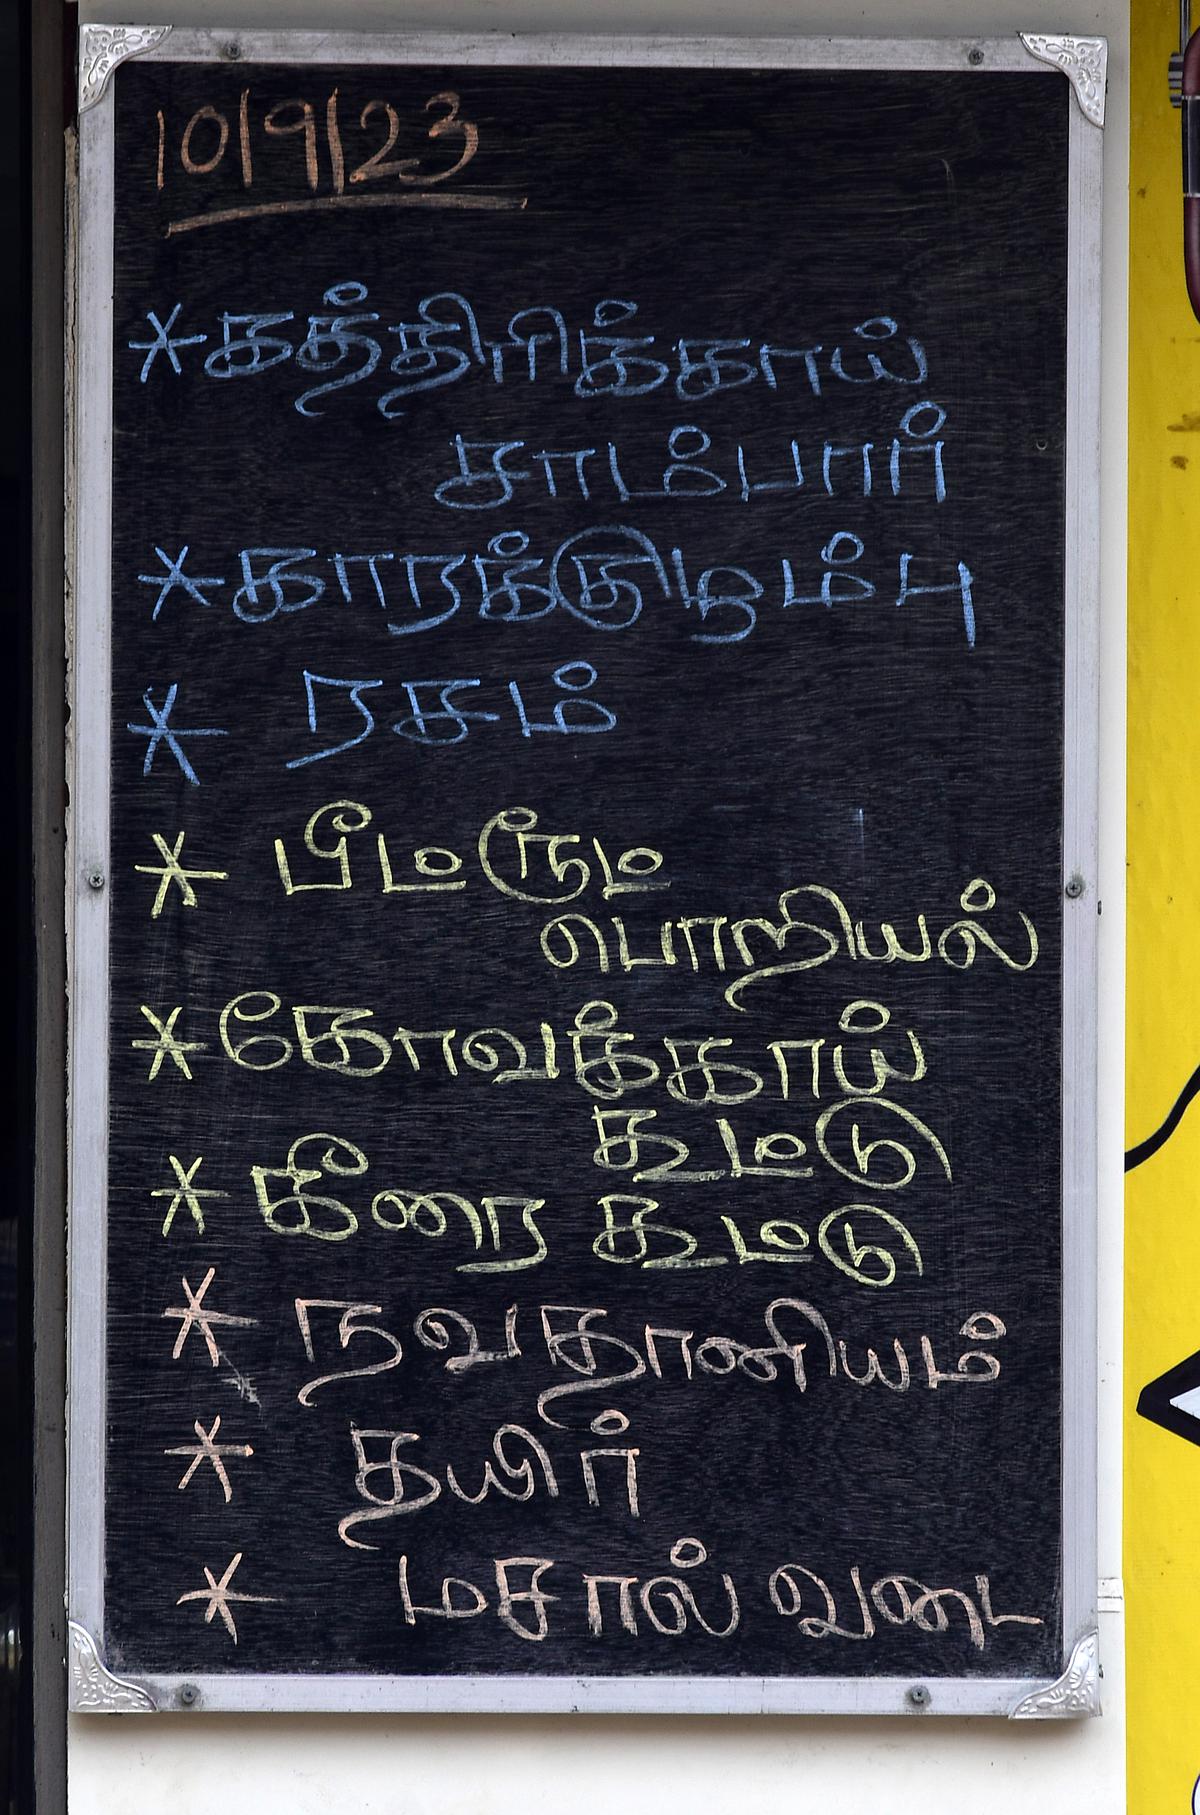 10/9/23
* கத்திரிக்காய்
சாம்பார்
* காரக்குழம்பு
* ரசம்
* பீட்ரூட்
பொறியல்
* கோவக்காய்
கூட்டு
* கீரை கூட்டு
* நவதானியம்
* தயிர்
* மசால் வடை